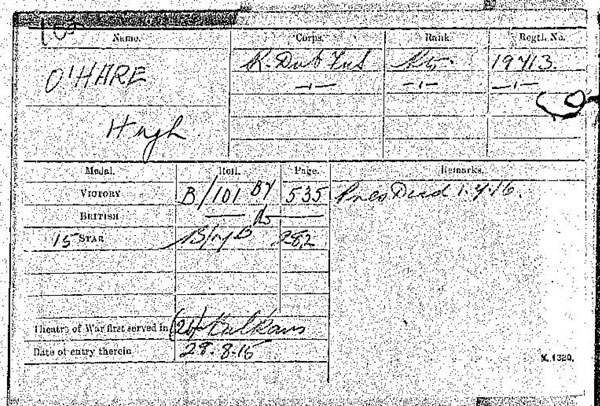 Name. Corps. Rank. Regtl. No.
O'HARE R. Dub Fus Pte. 19413.
Hugh.
Medal. Roll. Page. Remarks.
VICTORY B/101 B4 535 Pres Dead 1.4.16.
BRITISH
15 STAR 282
Theatre of War first served in (2b) Balkans
Date of entry therein 28.8.15
K. 1320.